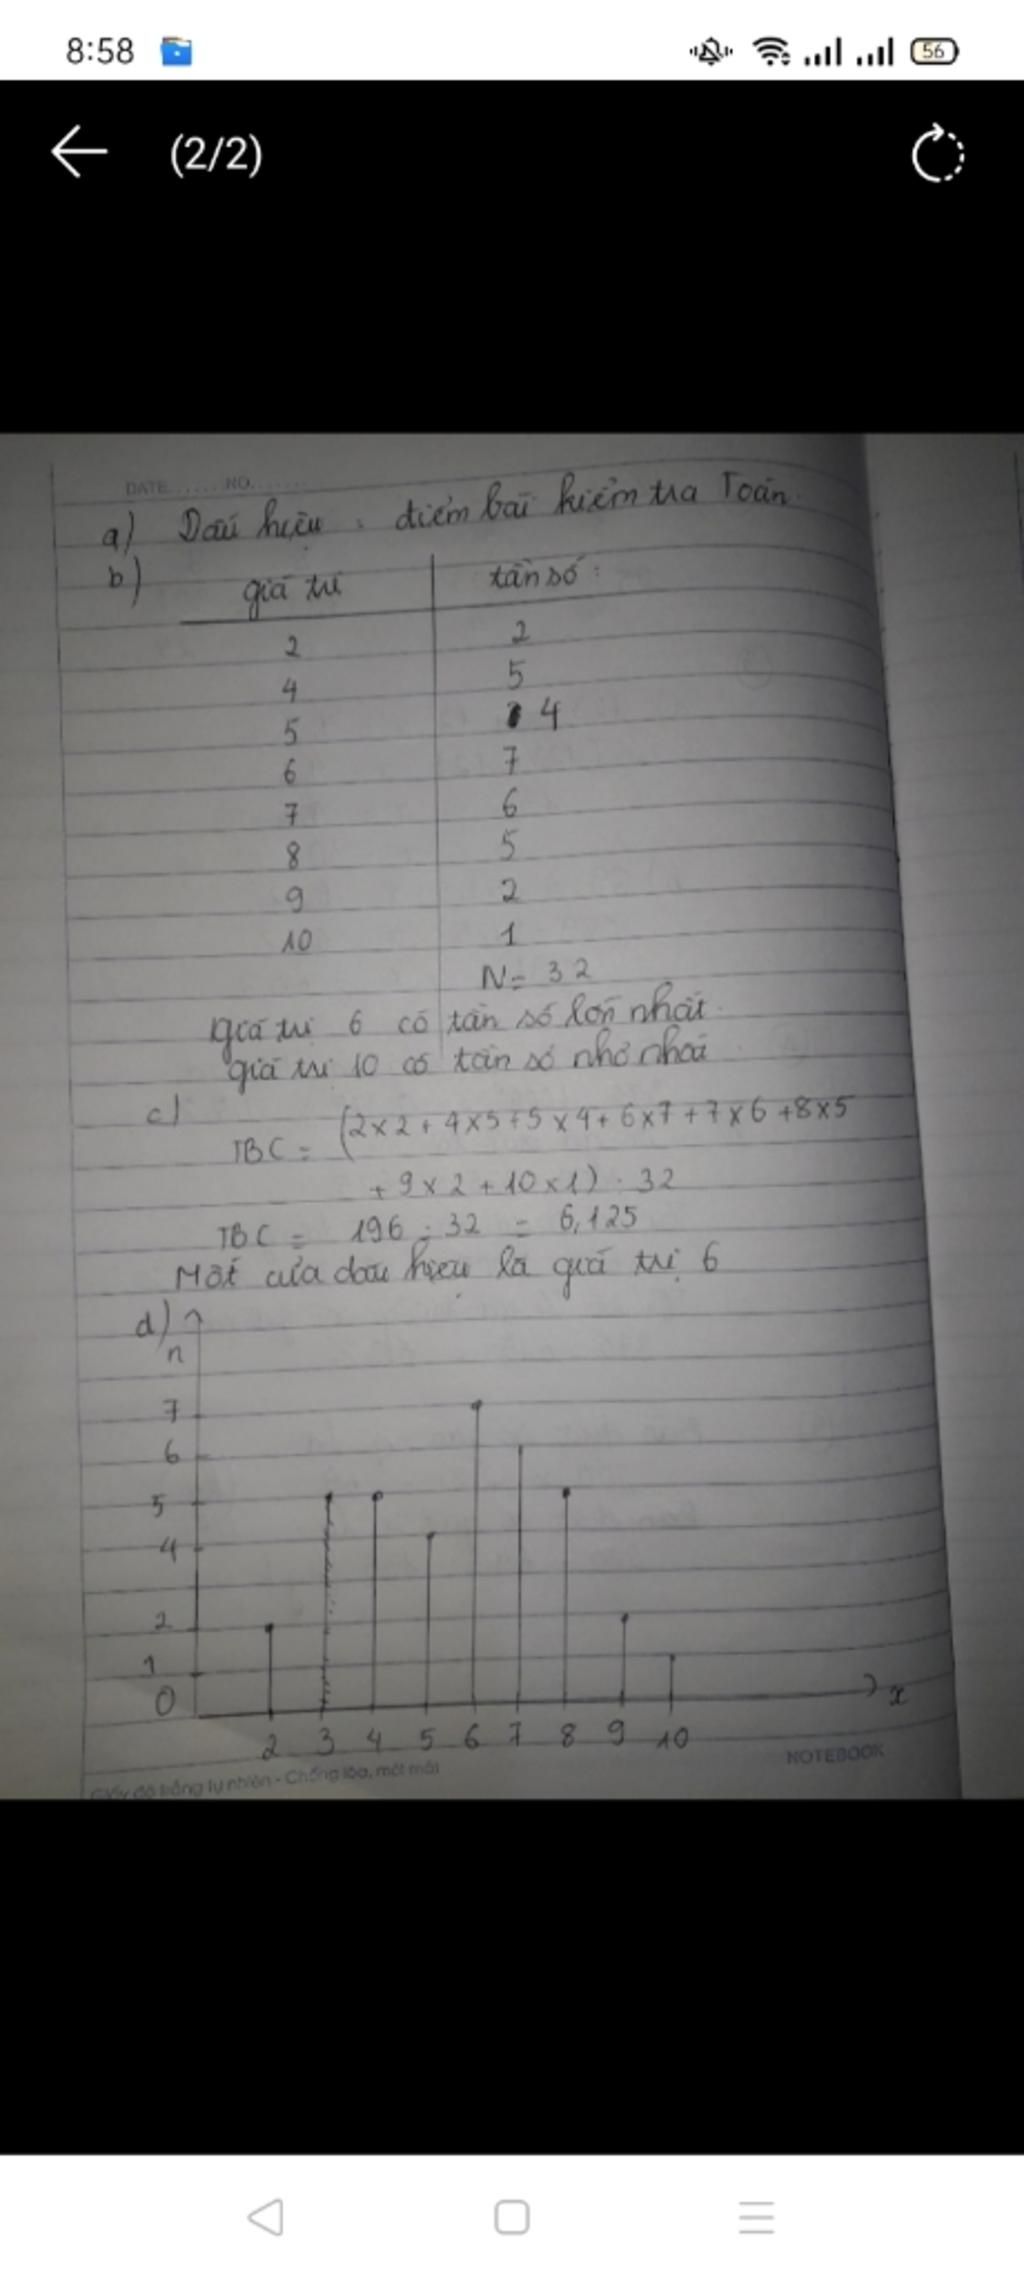 8:58
56
(2/2)
DATE......NO.......
a) Dấu hiệu : điểm bài kiểm tra Toán.
b) giá trị tần số :
2 2
4 5
5 4
6 7
7 6
8 5
9 2
10 1
N= 32
giá trị 6 có tần số lớn nhất.
giá trị 10 có tần số nhỏ nhất
c)
TBC = (2x2 + 4x5+5x4+ 6x7+7x6 +8x5
+ 9x2 +10x1) : 32
TBC = 196 : 32 = 6,125
Mốt của dấu hiệu là giá trị 6
d)
n
7
6
5
4
2
1
0
x
2 3 4 5 6 7 8 9 10
Giấy độ trắng tự nhiên - Chống lóa, mát mắt
NOTEBOOK